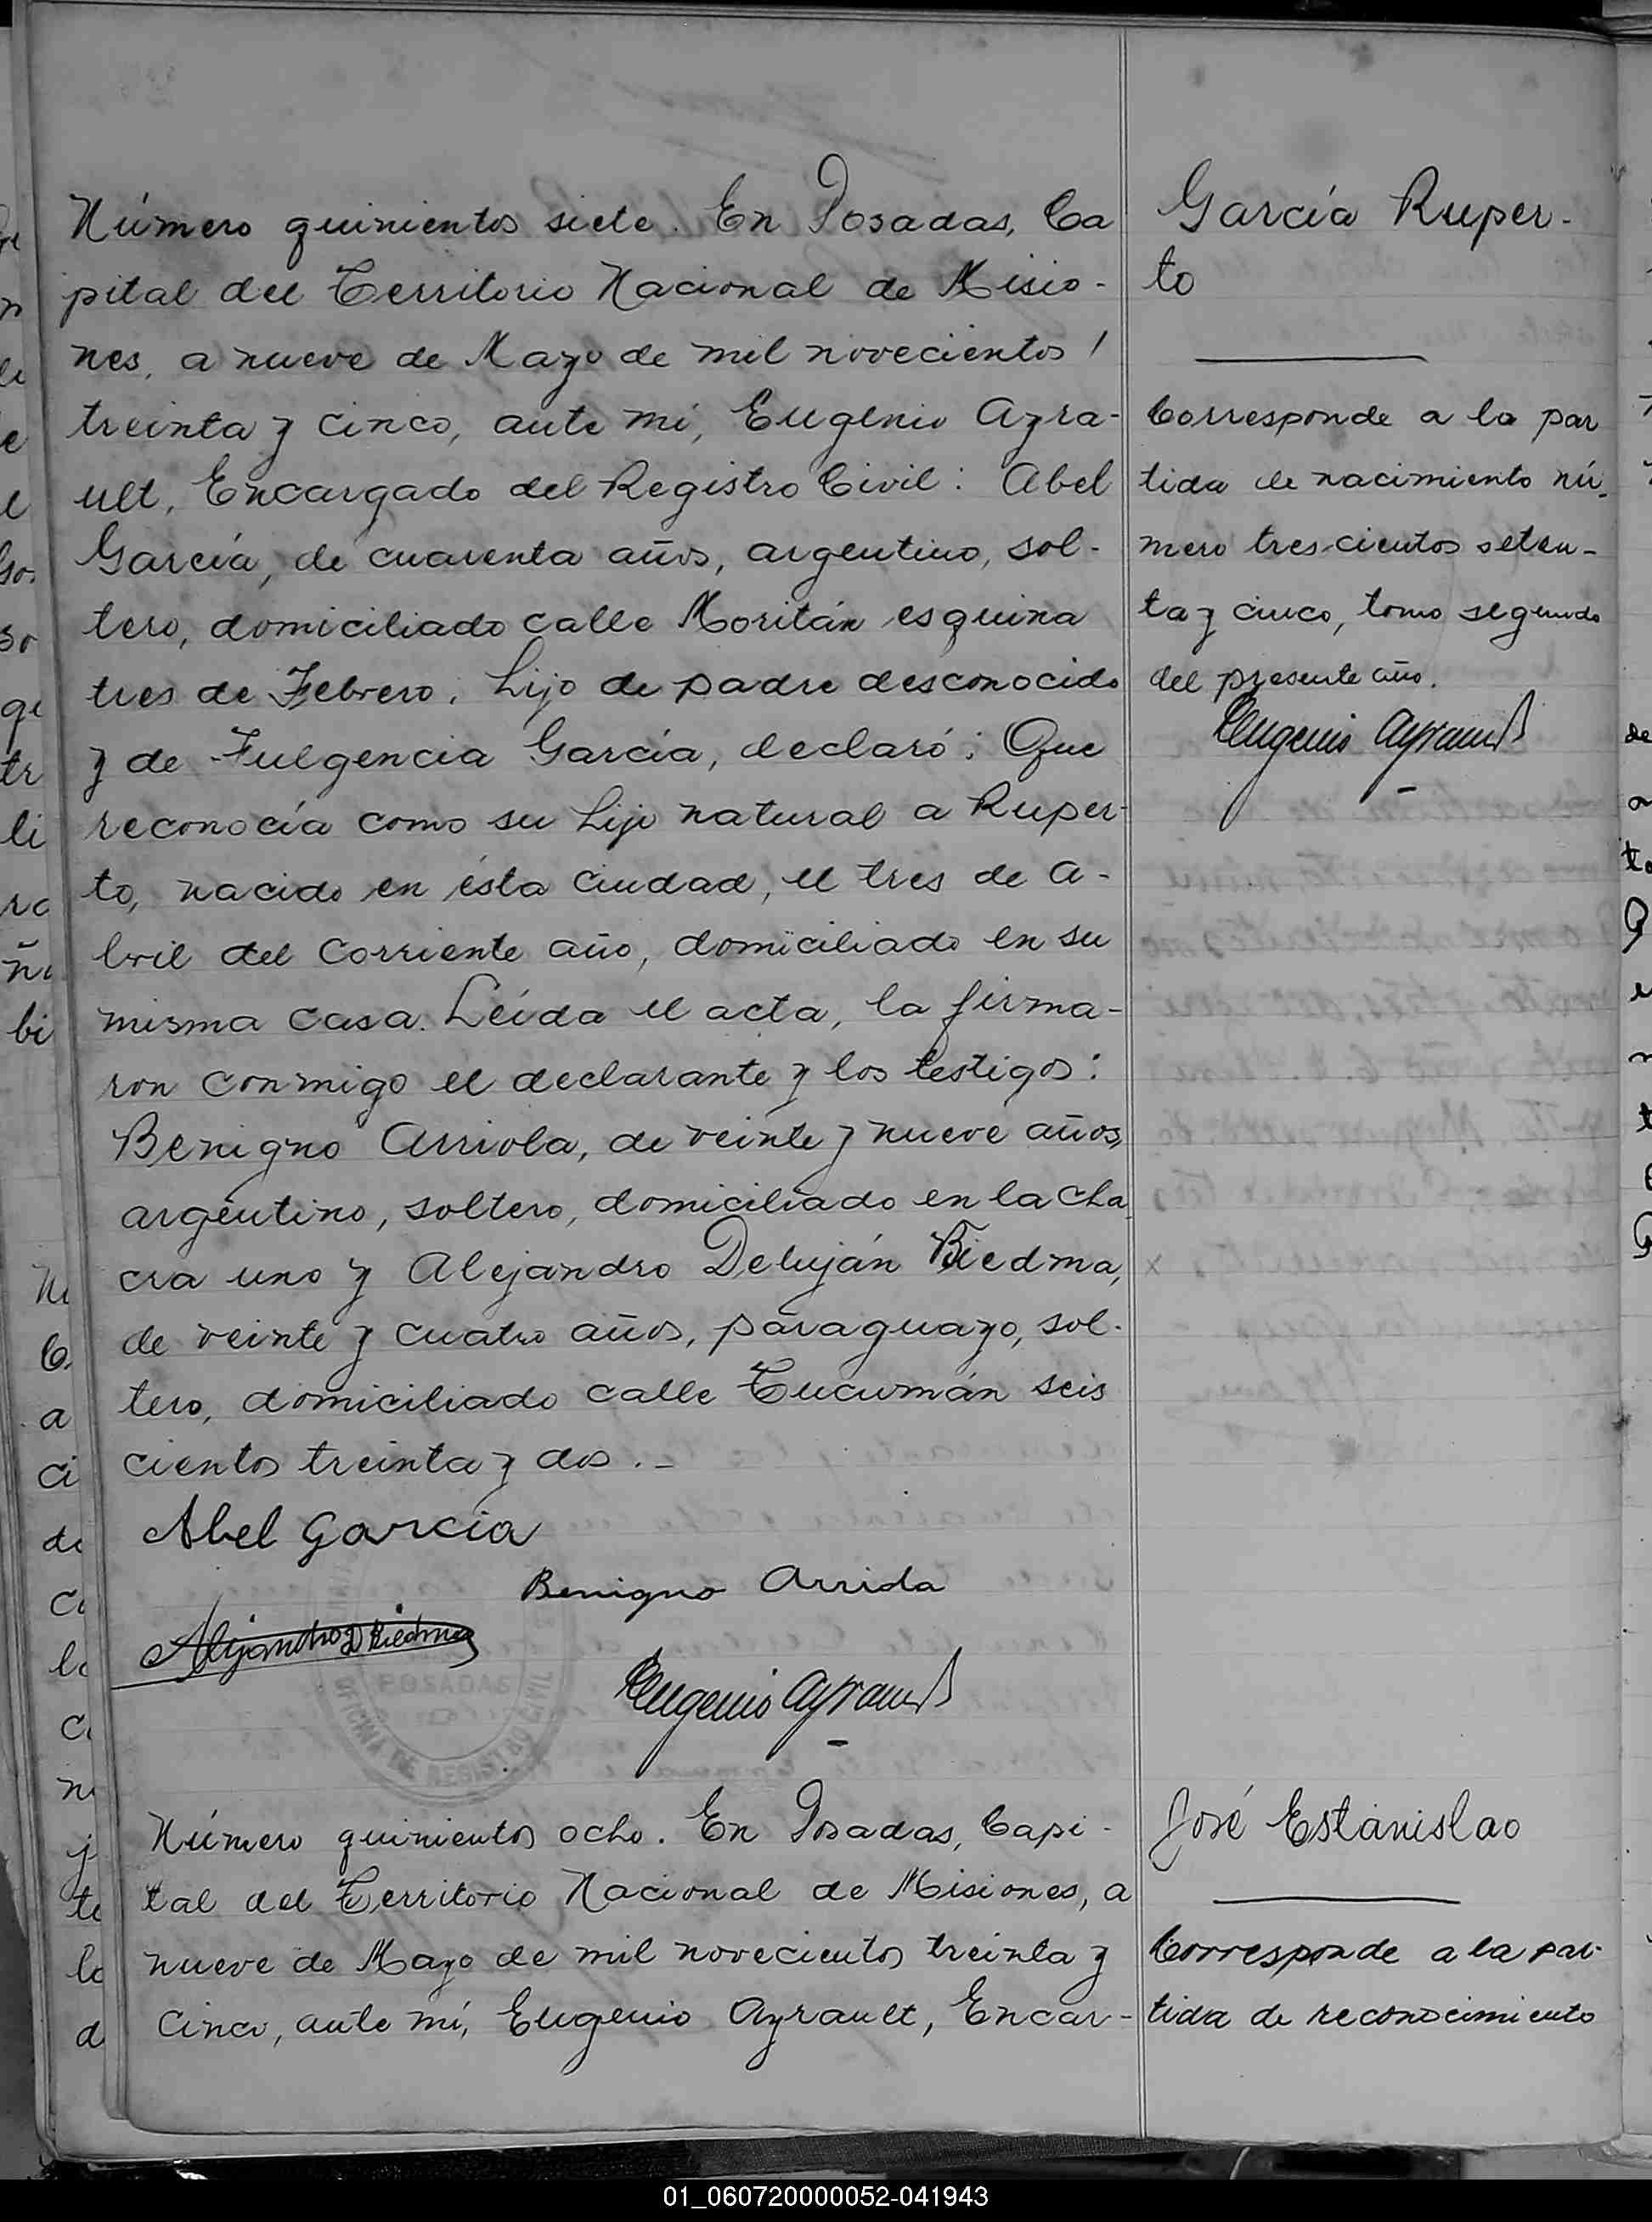 Número quinientos siete. En Posadas, Ca
pital del Territorio Nacional de Misio-
nes, a nueve de Mayo de mil novecientos
treinta y cinco, ante mí, Eugenio Ayra-
ult, Encargado del Registro Civil: Abel
García, de cuarenta años, argentino, sol-
tero, domiciliado calle Moritán esquina
tres de Febrero, hijo de padre desconocido
y de Fulgencia García, declaró: Que
reconocía como su hijo natural a Ruper-
to, nacido en ésta ciudad, el tres de A-
bril del corriente año, domiciliado en su
misma casa. Leída el acta, la firma-
ron conmigo el declarante y los testigos:
Benigno Arriola, de veinte y nueve años,
argentino, soltero, domiciliado en la cha
cra uno y Alejandro Deluján Biedma,
de veinte y cuatro años, paraguayo, sol-
tero, domiciliado calle Tucumán seis
cientos treinta y dos.-
Abel García
Benigno Arriola
Alejandro D Biedma
POSADAS
OFICINA DE REGISTRO CIVIL
Eugenio Ayrault
García Ruper-
to
Corresponde a la par
tida de nacimiento nú-
mero tres-cientos seten-
ta y cinco, tomo segundo
del presente año.
Eugenio Ayrault
Número quinientos ocho. En Posadas, Capi-
tal del Territorio Nacional de Misiones, a
nueve de Mayo de mil novecientos treinta y
cinco, ante mí, Eugenio Ayrault, Encar-
José Estanislao
Corresponde a la par-
tida de reconocimiento
01_060720000052-041943